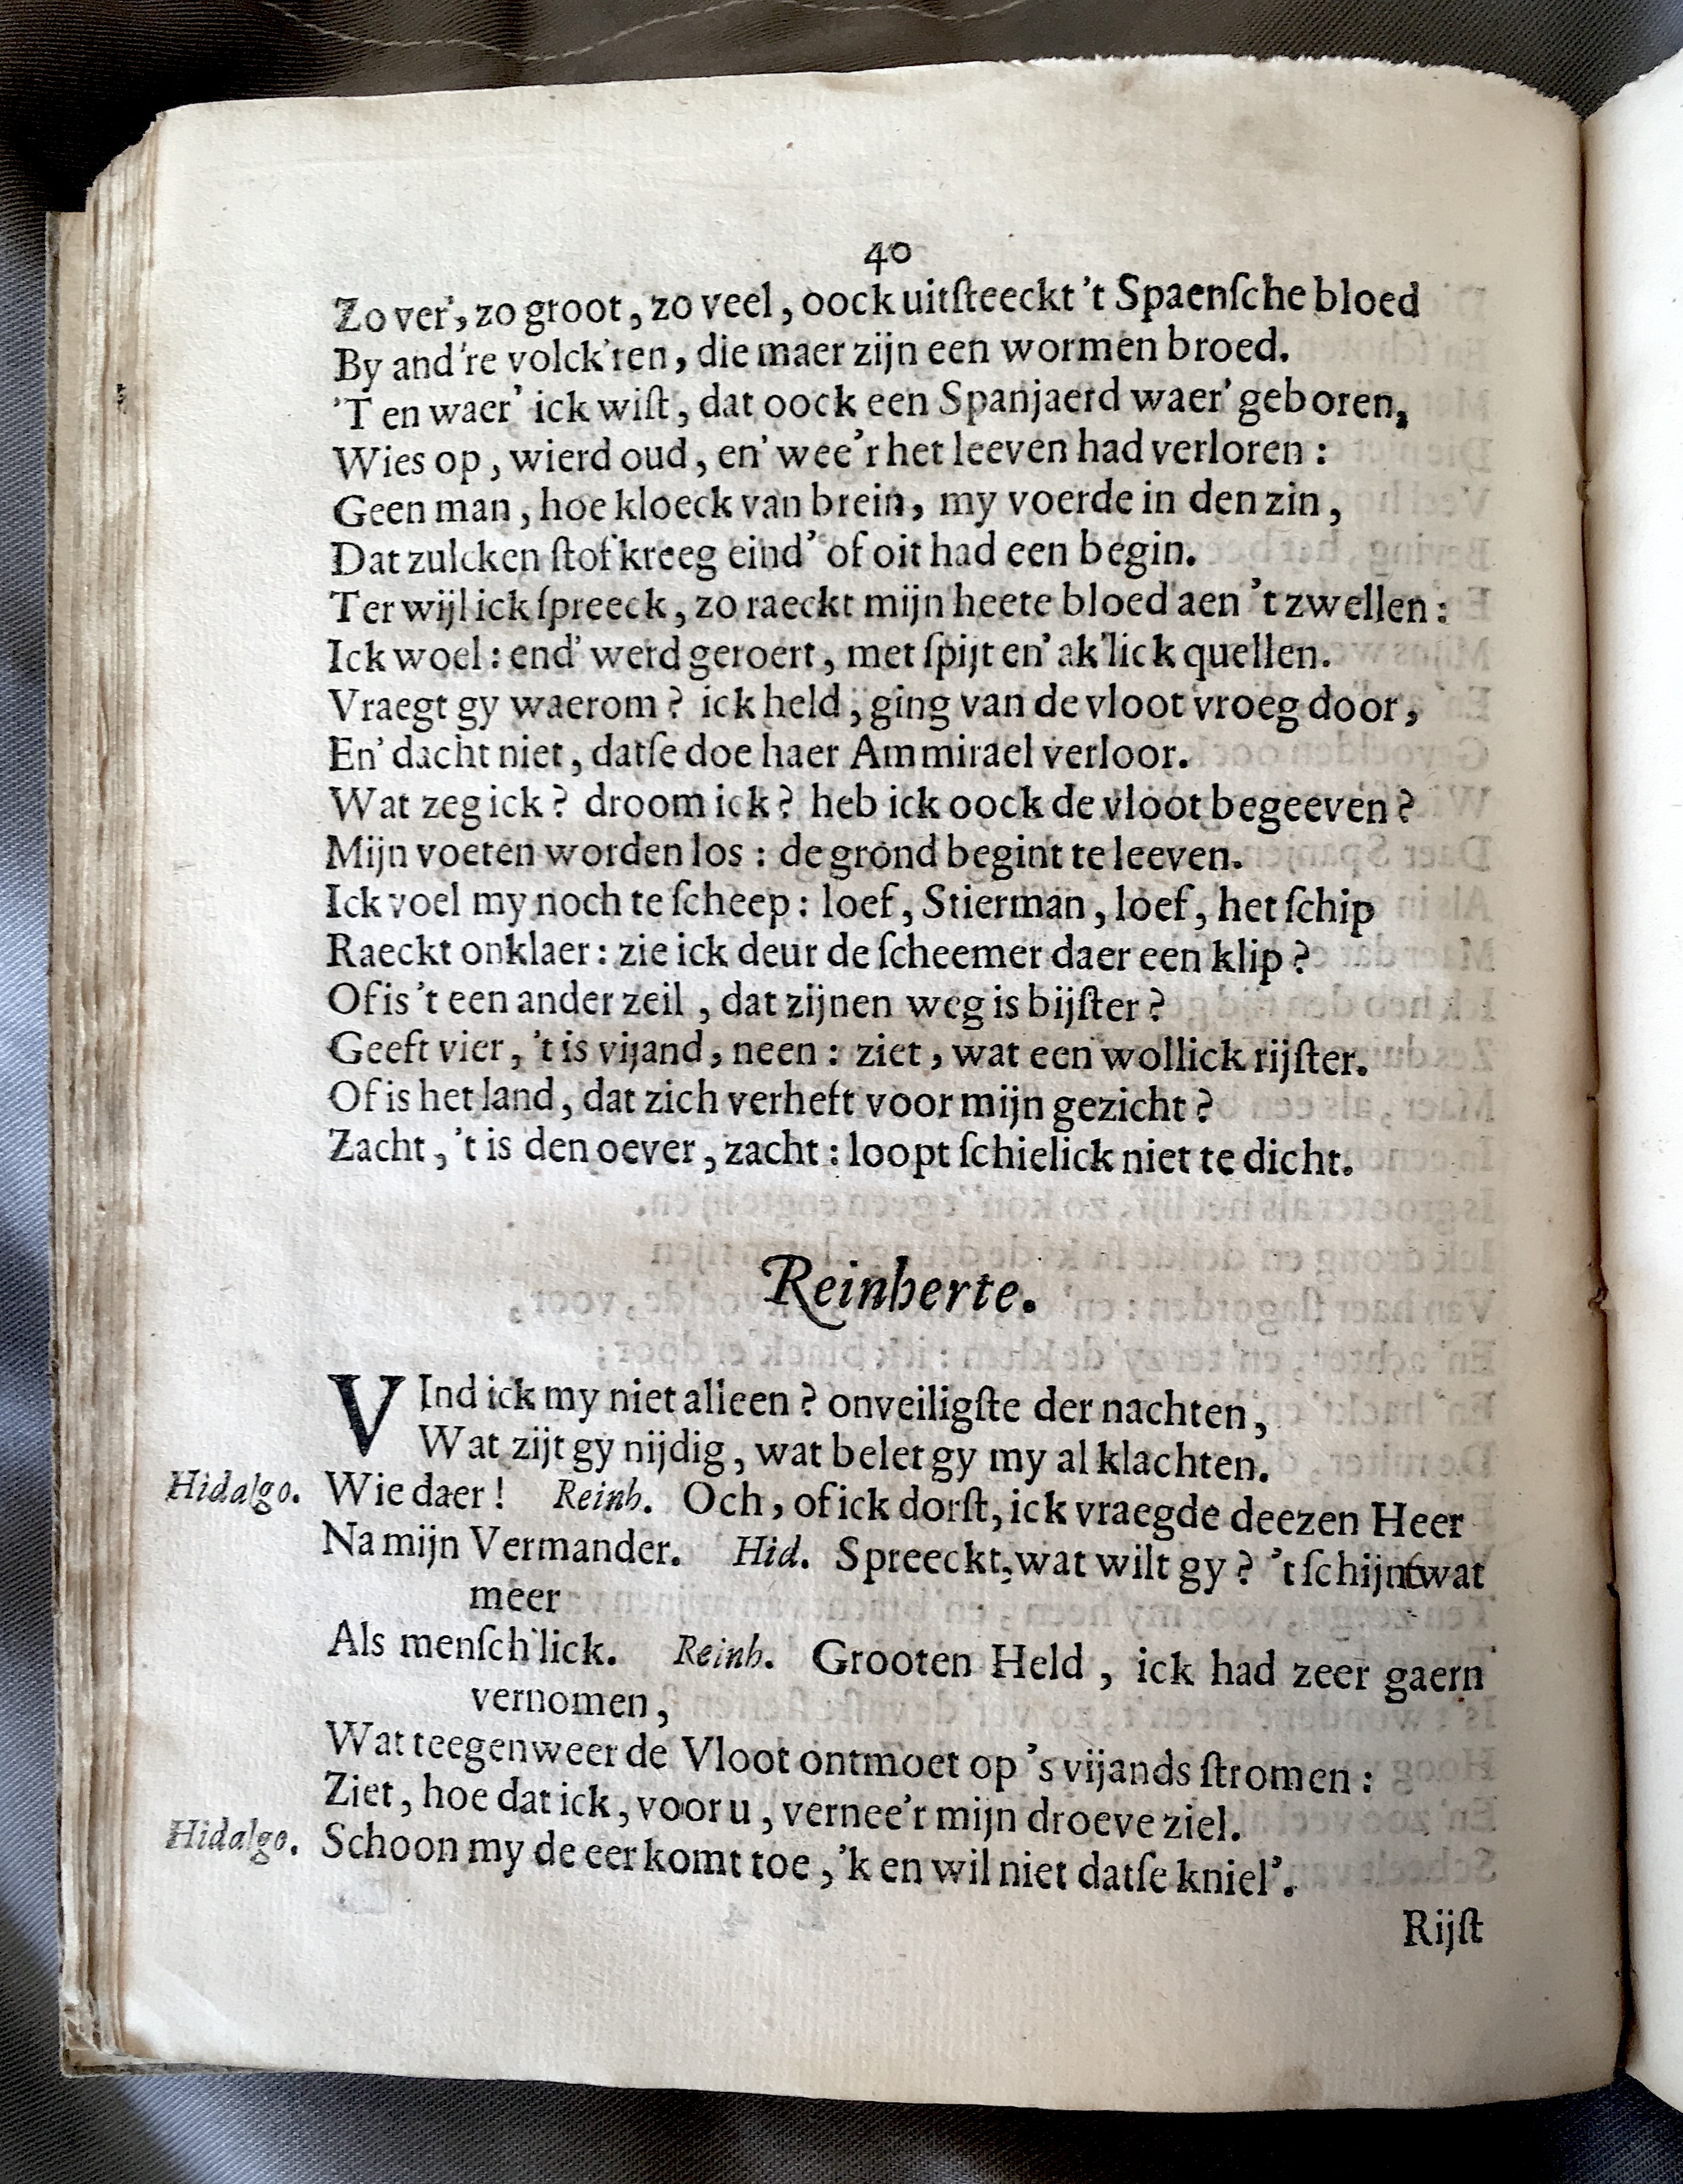 40
Zo ver', zo groot, zo veel, oock uitſteeckt 't Spaenſche bloed
By and're volck'ren, die maer zijn een wormen broed.
'T en waer' ick wiſt, dat oock een Spanjaerd waer' geboren,
Wies op, wierd oud, en' wee'r het leeven had verloren:
Geen man, hoe kloeck van brein, my voerde in den zin,
Dat zulcken ſtof kreeg eind' of oit had een begin.
Terwijl ick ſpreeck, zo raeckt mijn heete bloed aen 't zwellen:
Ick woel: end' werd geroert, met ſpijt en' ak'lick quellen.
Vraegt gy waerom? ick held, ging van de vloot vroeg door,
En' dacht niet, datſe doe haer Ammirael verloor.
Wat zeg ick? droom ick? heb ick oock de vloot begeeven?
Mijn voeten worden los: de grond begint te leeven.
Ick voel my noch te ſcheep: loef, Stierman, loef, het ſchip
Raeckt onklaer: zie ick deur de ſcheemer daer een klip?
Of is 't een ander zeil, dat zijnen weg is bijſter?
Geeft vier, 't is vijand, neen: ziet, wat een wollick rijſter.
Of is het land, dat zich verheft voor mijn gezicht?
Zacht, 't is den oever, zacht: loopt ſchielick niet te dicht.
Reinherte.
VInd ick my niet alleen? onveiligſte der nachten,
Wat zijt gy nijdig, wat belet gy my al klachten.
Hidalgo. Wie daer! Reinh. Och, of ick dorſt, ick vraegde deezen Heer
Na mijn Vermander. Hid. Spreeckt, wat wilt gy? 't ſchijnt wat
meer
Als menſch'lick. Reinh. Grooten Held, ick had zeer gaern
vernomen,
Wat teegenweer de Vloot ontmoet op 's vijands ſtromen:
Ziet, hoe dat ick, voor u, vernee'r mijn droeve ziel.
Hidalgo. Schoon my de eer komt toe, 'k en wil niet datſe kniel'.
Rijſt